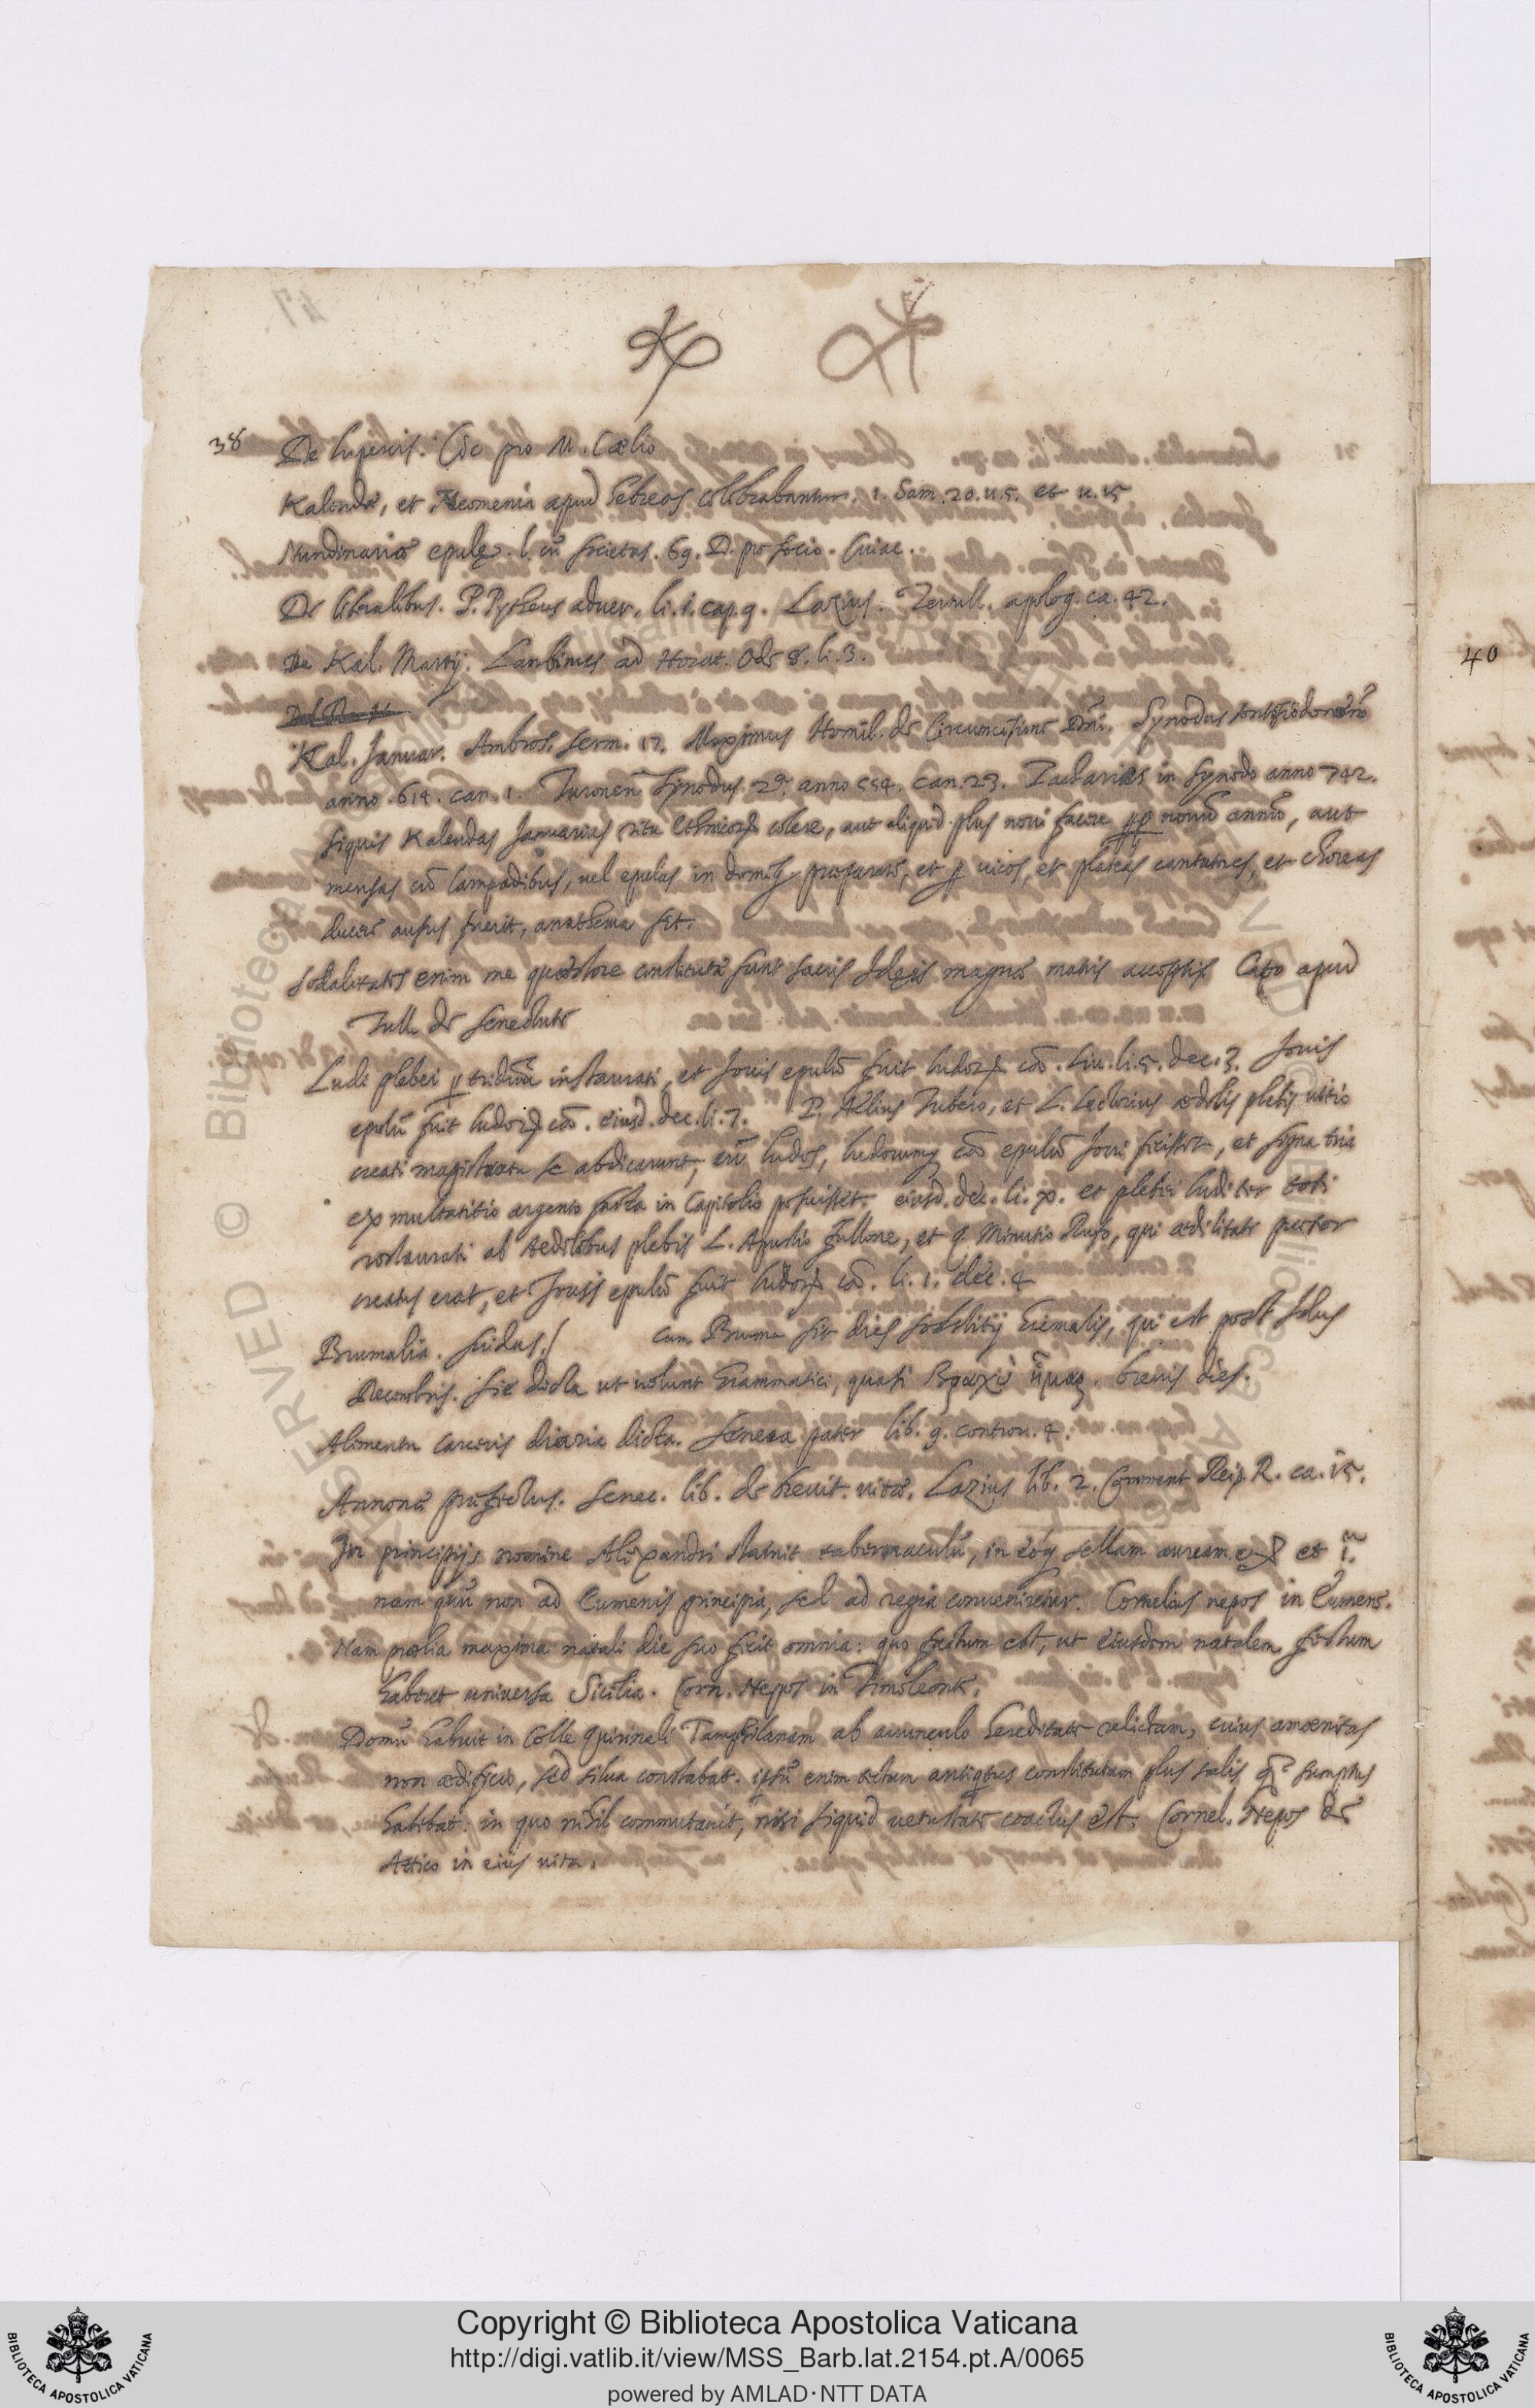 38 De lupercis. Cic pro M. Cælio
Kalendæ, et Neomenia apud hebreos celebrabantur. 1. Sam. 20. u.5. et u.15
Nundinariæ epulę. l. cũ societas. 69. D. pro socio. Cuiac.
De liberalibus. P. Pytheus aduer. li.i.cap.9. Lazius. Tertull. apolog. ca. 42.
De Kal. Martij. Lanbinus ad Horat. Ode 8. li.3.
Kal. Januar. Ambros. serm. 17. Maximus Homil. de Circuncisione Dñi. Synodus
anno .614. can. 1. Turoneñ synodus 2ª anno 554. Can. 23. Zacharias in synodo anno 742.
siquis Kalendas Januarias ritu ethnicorꝝ colere, aut aliquid plus noui facere ꝓꝑ nouũ annũ, aut
mensas cũ lampadibus, uel epulas in domibꝫ preparare, et ꝑ uicos, et plateas cantatores, et choreas
ducere ausus fuerit, anathema sit.
sodalitates enim me quæstore constitutæ sunt sacris Idęis magnæ matris acceptis Cato apud
Tull. de senectute
Ludi plebei ꝑ triduũ instaurati, et Jouis epulũ fuit ludorꝝ cã. Liu. li.5. dec. 3. Jouis
epulũ fuit ludorꝝ cã. eiusd. dec. li. 7. P. Ælius Tubero, et L. Lectorius ædiles plebis uitio
creati magistratu se abdicarunt, cũ ludos, ludorumqꝫ cã epulũ Joui fecisset, et signa tria
ex multatitio argento facta in Capitolio posuisset. eiusd. dec. li. X. et plebei ludi ter toti
restaurati ab Aedilibus plebis L. Apustio fullone, et q. Minutio Ruffo, qui ædilitate pretor
creatus erat, et Jouis epulũ fuit ludorꝝ cã. li. 1. dec. 4
Brumalia. suidas. Cum Bruma sit dies solstitij hiemalis, qui est post Idus
Decembris. sic dicta ut uolunt Grammatici, quasi βραχὺ ἦμαρ. breuis dies.
Alimenta carceris diaria dicta. Seneca pater lib. 9. controu. 4.
Annonæ præfectus. Senec. lib. de breuit. uitæ. Lazius lib. 2. Comment. Reip. R. ca. 15.
In principijs nomine Alexandri statuit tabernaculũ, in eoqꝫ sellam auream
nam quũ non ad Eumenis principia, sed ad regia conueniretur. Cornelius nepos in Eumene.
Nam prœlia maxima natali die suo fecit omnia: quo factum est, ut eiusdem natalem festum
haberet uniuersa Sicilia. Corn. Nepos in Timoleonte.
Domũ habuit in Colle quirinali Tamphilanam ab auunculo hereditate relictam, cuius amœnitas
non ædificio, sed silua constabat. ipsũ enim tectum antiquitus constitutum plus salis q̃ sumptus
habebat: in quo nihil commutauit, nisi siquid uetustate coactus est. Cornel. Nepos de
Attico in eius uita.
40
Copyright © Biblioteca Apostolica Vaticana
http://digi.vatlib.it/view/MSS_Barb.lat.2154.pt.A/0065
powered by AMLAD·NTT DATA